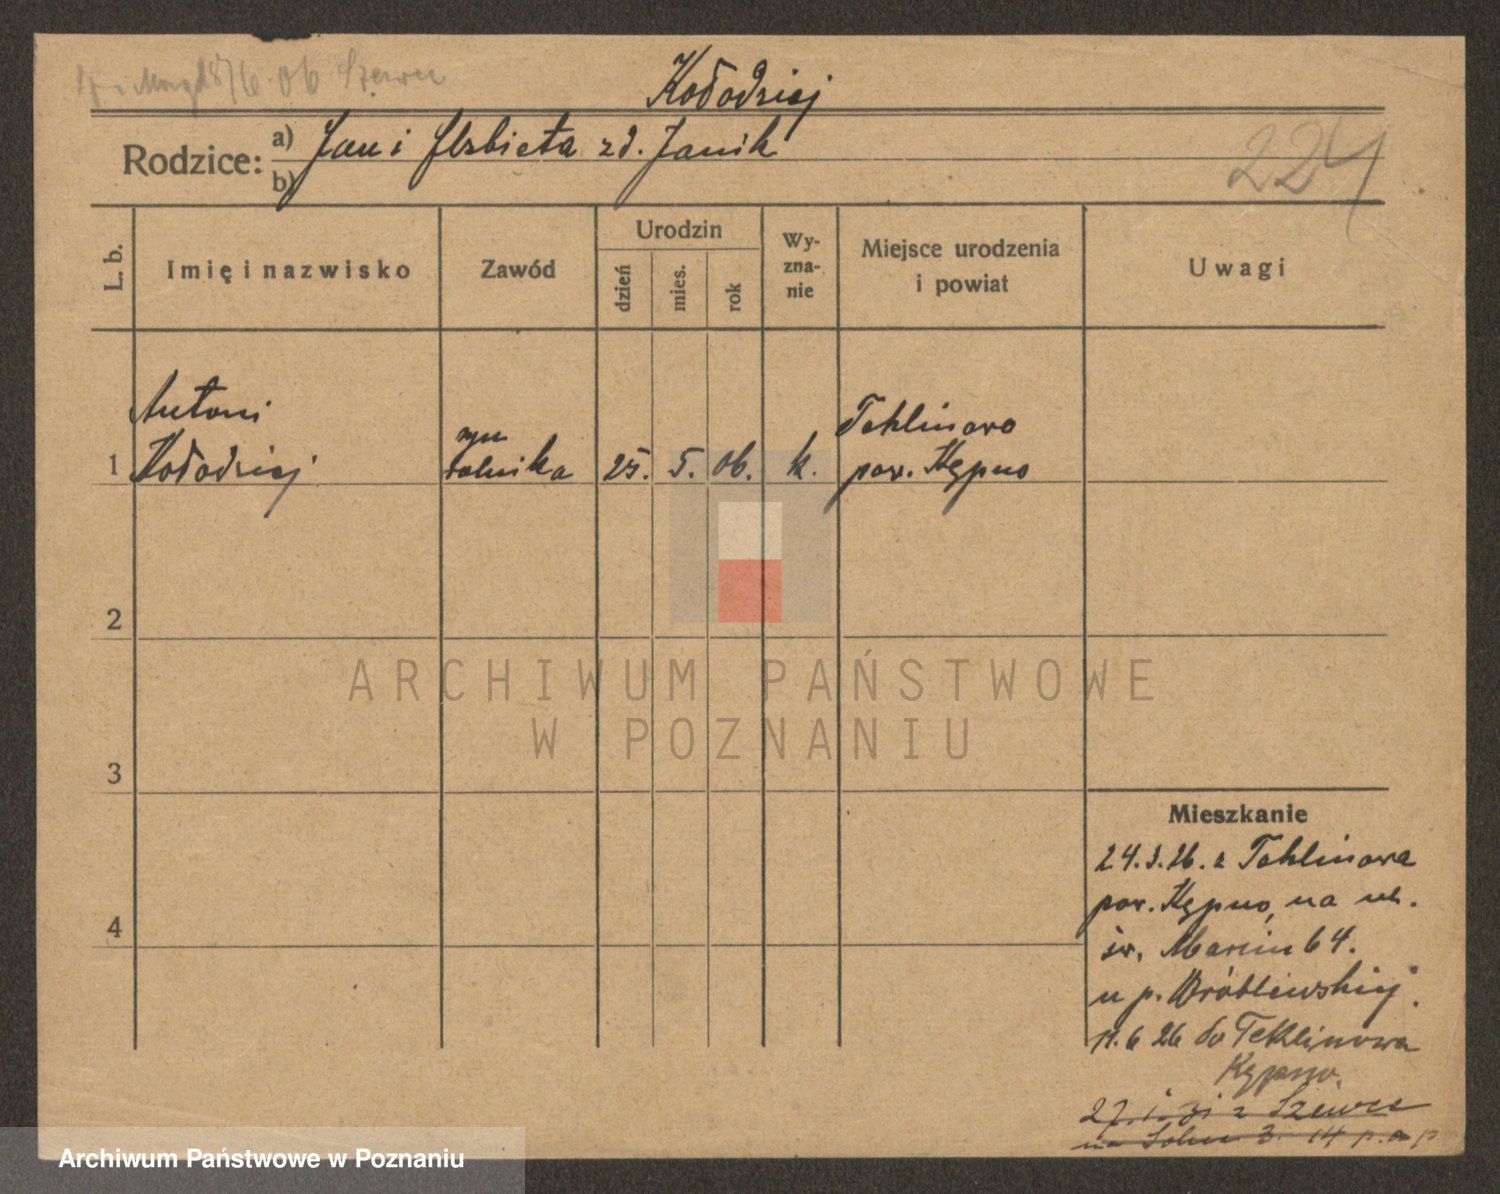 06 Szewce
Kołodziej
Rodzice: a) Jan i Elżbieta zd. Janik
b)
224
L. b.
Imię i nazwisko
Zawód
Urodzin
dzień
mies.
rok
Wy-
zna-
nie
Miejsce urodzenia
i powiat
Uwagi
Antoni
Kołodziej
syn
rolnika
25. 5. 06. k.
Teklinowo
pow. Kępno
1
2
3
4
ARCHIWUM PAŃSTWOWE
W POZNANIU
Mieszkanie
24.3.26. z Teklinowa
pow. Kępno, na ul.
św. Marcin 64.
u p. Wróblewskiej.
11.6 26 do Teklinowa
Kępno.
27. i. 31 z Szewce
na 3. 14
Archiwum Państwowe w Poznaniu